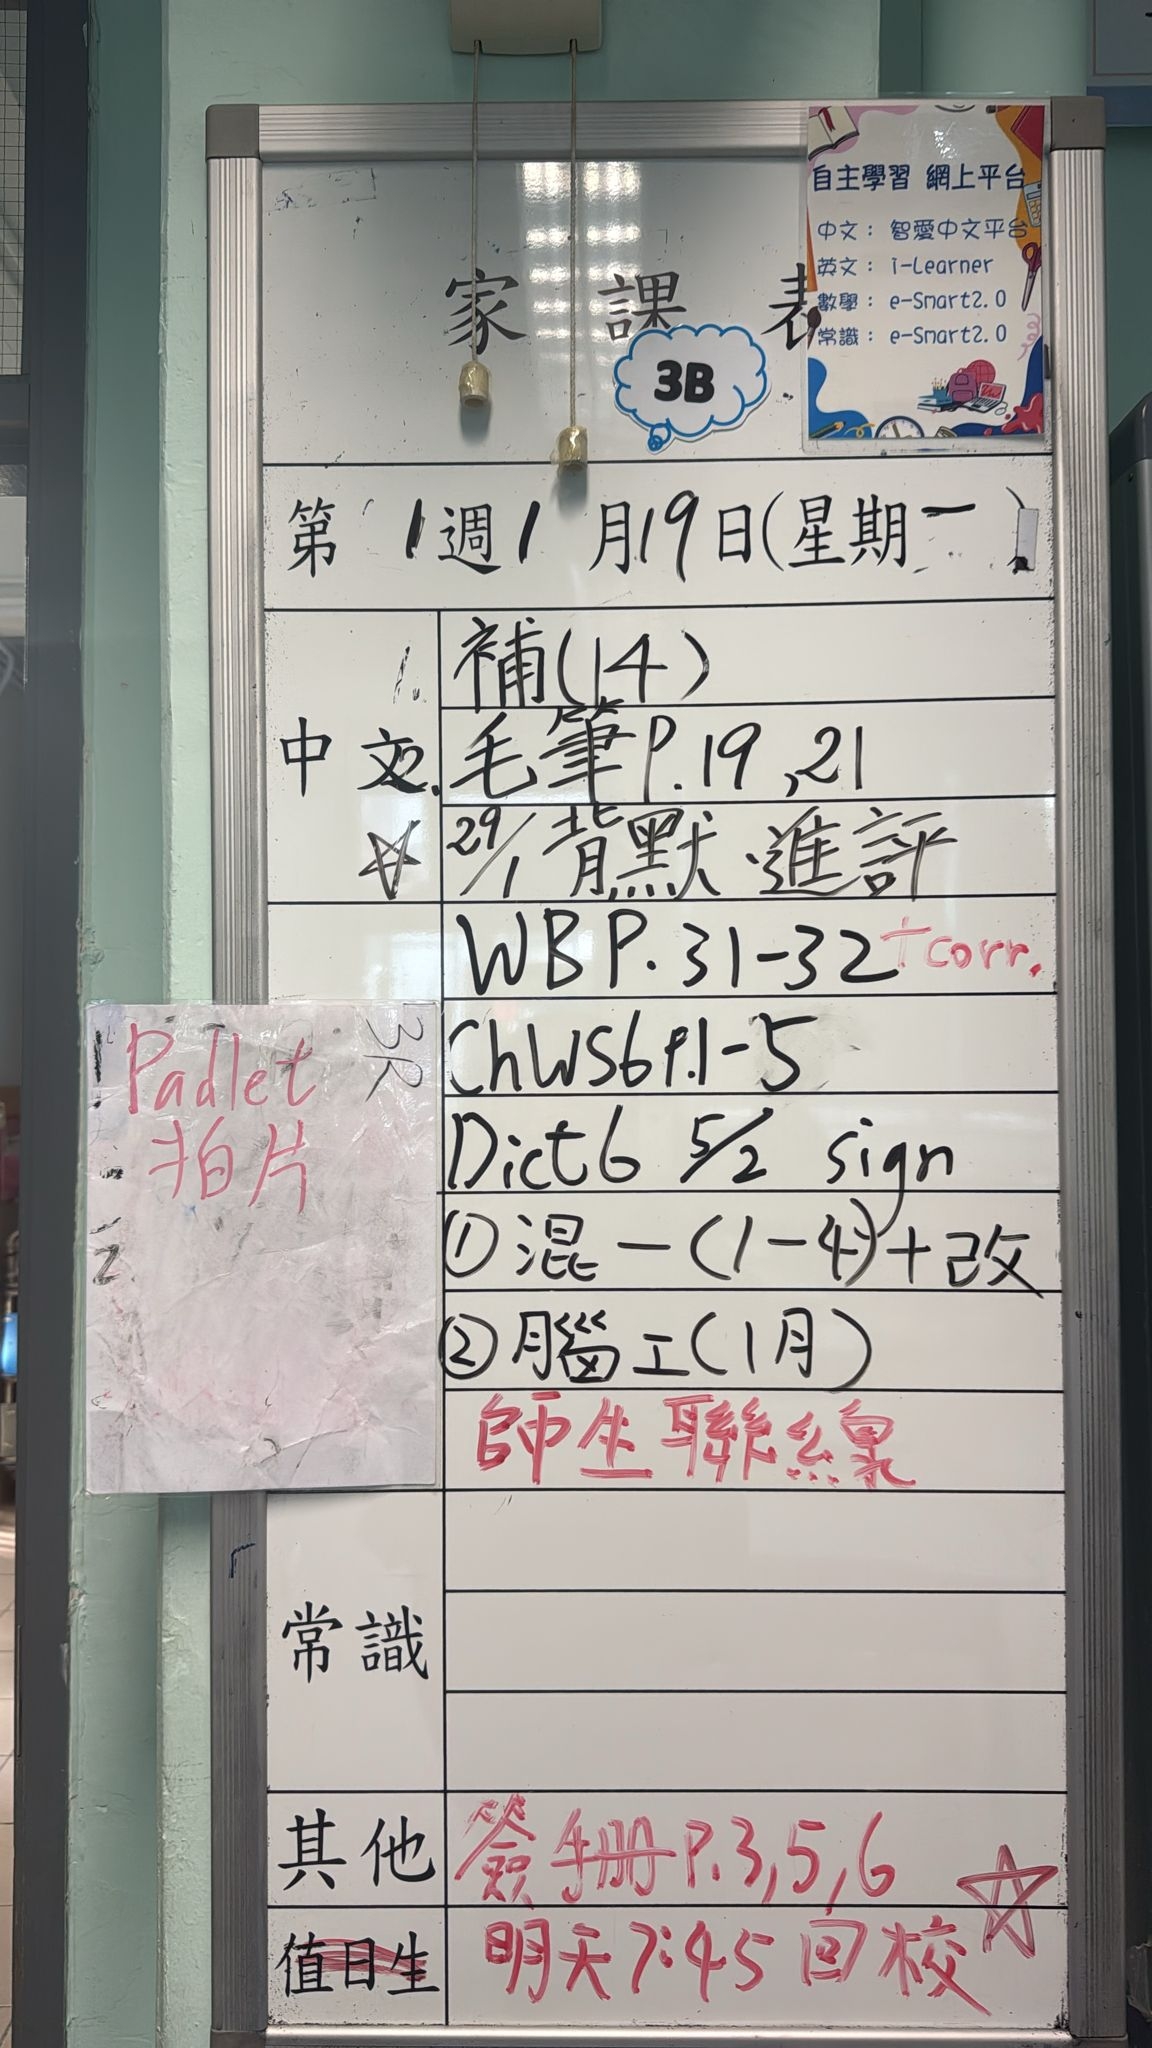 自主學習 網上平台
中文：智愛中文平台
英文：i-Learner
數學：e-Smart2.0
常識：e-Smart2.0
家課表
3B
第 1 週 1 月 19 日(星期一)
中文
1. 補(14)
2. 毛筆P.19,21
☆ 29/1 背默.進評
WB P.31-32 +corr.
ChWS6 P.1-5
Dict6 5/2 sign
Padlet
拍片
3R
①混一(1-4)+改
②腦工(1月)
師生聯線
常識
其他
簽手冊P.3,5,6 ☆
值日生
明天7:45回校